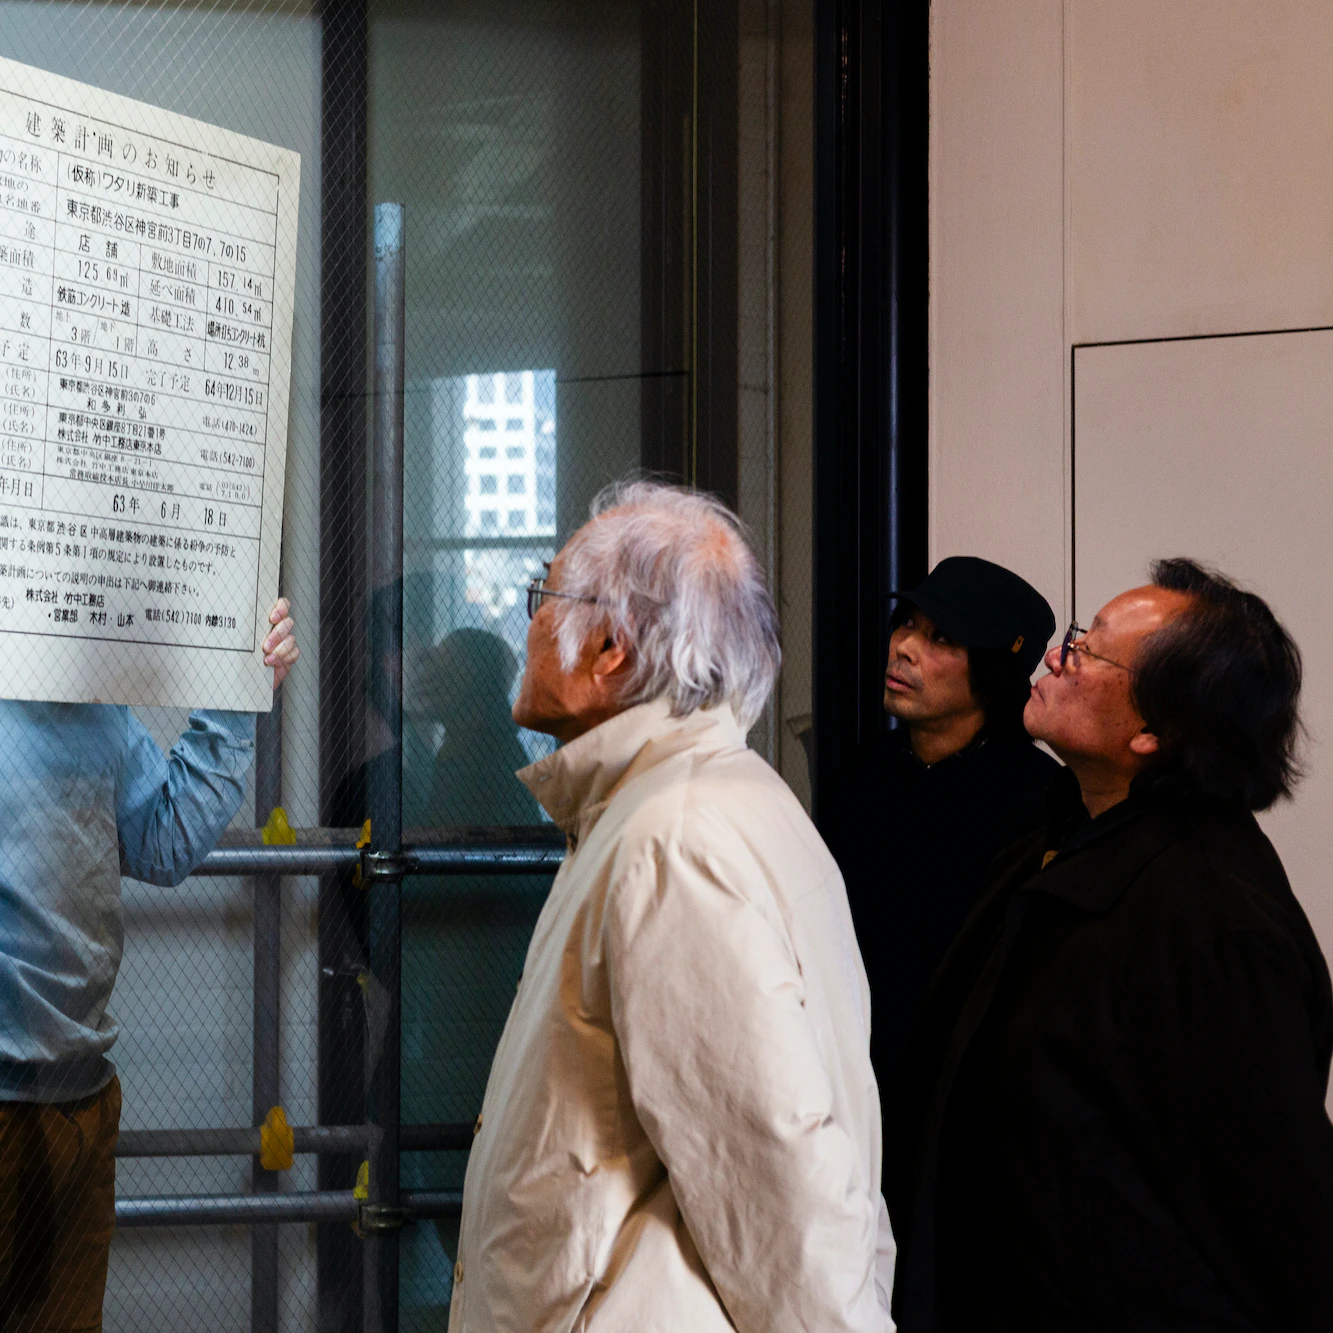 建築計画のお知らせ
の名称 (仮称)ワタリ新築工事
地の
名地番 東京都渋谷区神宮前3丁目7の7,7の15
途 店舗
築面積 125.69㎡ 敷地面積 157.14㎡
造 鉄筋コンクリート造 延べ面積 410.54㎡
数 地上3階/地下1階 基礎工法 場所打ちコンクリート杭
高さ 12.38m
予定 63年9月15日 完了予定 64年12月15日
(住所) 東京都渋谷区神宮前3の7の6
(氏名) 和多利 弘 電話(470-1424)
(住所) 東京都中央区銀座8丁目21番1号
(氏名) 株式会社 竹中工務店東京本店 電話(542-7100)
(住所) 東京都中央区銀座8-21-1
(氏名) 株式会社 竹中工務店 東京本店
常務取締役本店長 電話
年月日 63年 6月 18日
識は、東京都渋谷区中高層建築物の建築に係る紛争の予防と
関する条例第5条第1項の規定により設置したものです。
築計画についての説明の申出は下記へ御連絡下さい。
先) 株式会社 竹中工務店
・営業部 木村・山本 電話(542)7100 内線3130